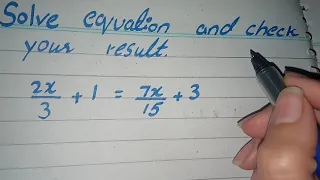 Solve equation and check
your result.
2x/3 + 1 = 7x/15 + 3